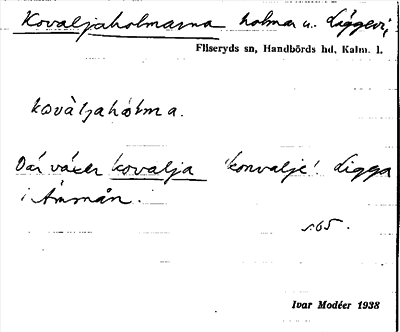 Kovaljaholmarna holmar u. Liggevi,
Fliseryds sn, Handbörds hd, Kalm. l.
kovàljahòlma.
Där växer kovalja 'konvalje'. Ligga
i Ämmån.
s. 65.
Ivar Modéer 1938